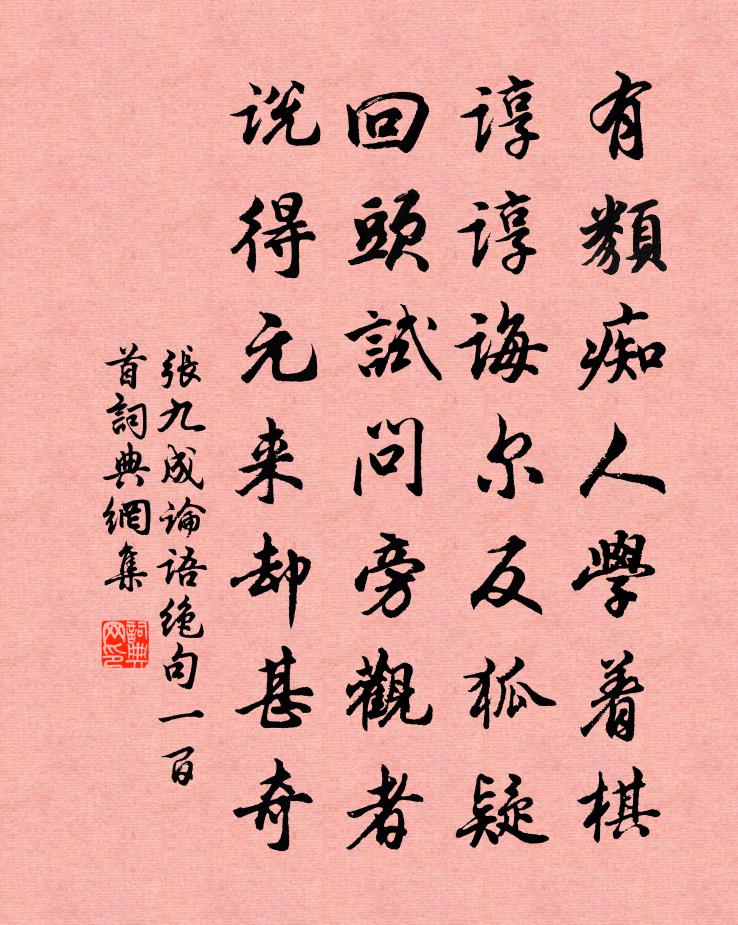 有類痴人學着棋
諄諄誨尔反狐疑
回頭試問旁觀者
说得元来却甚奇
張九成论语绝句一百
首詞典網集
詞典
网印